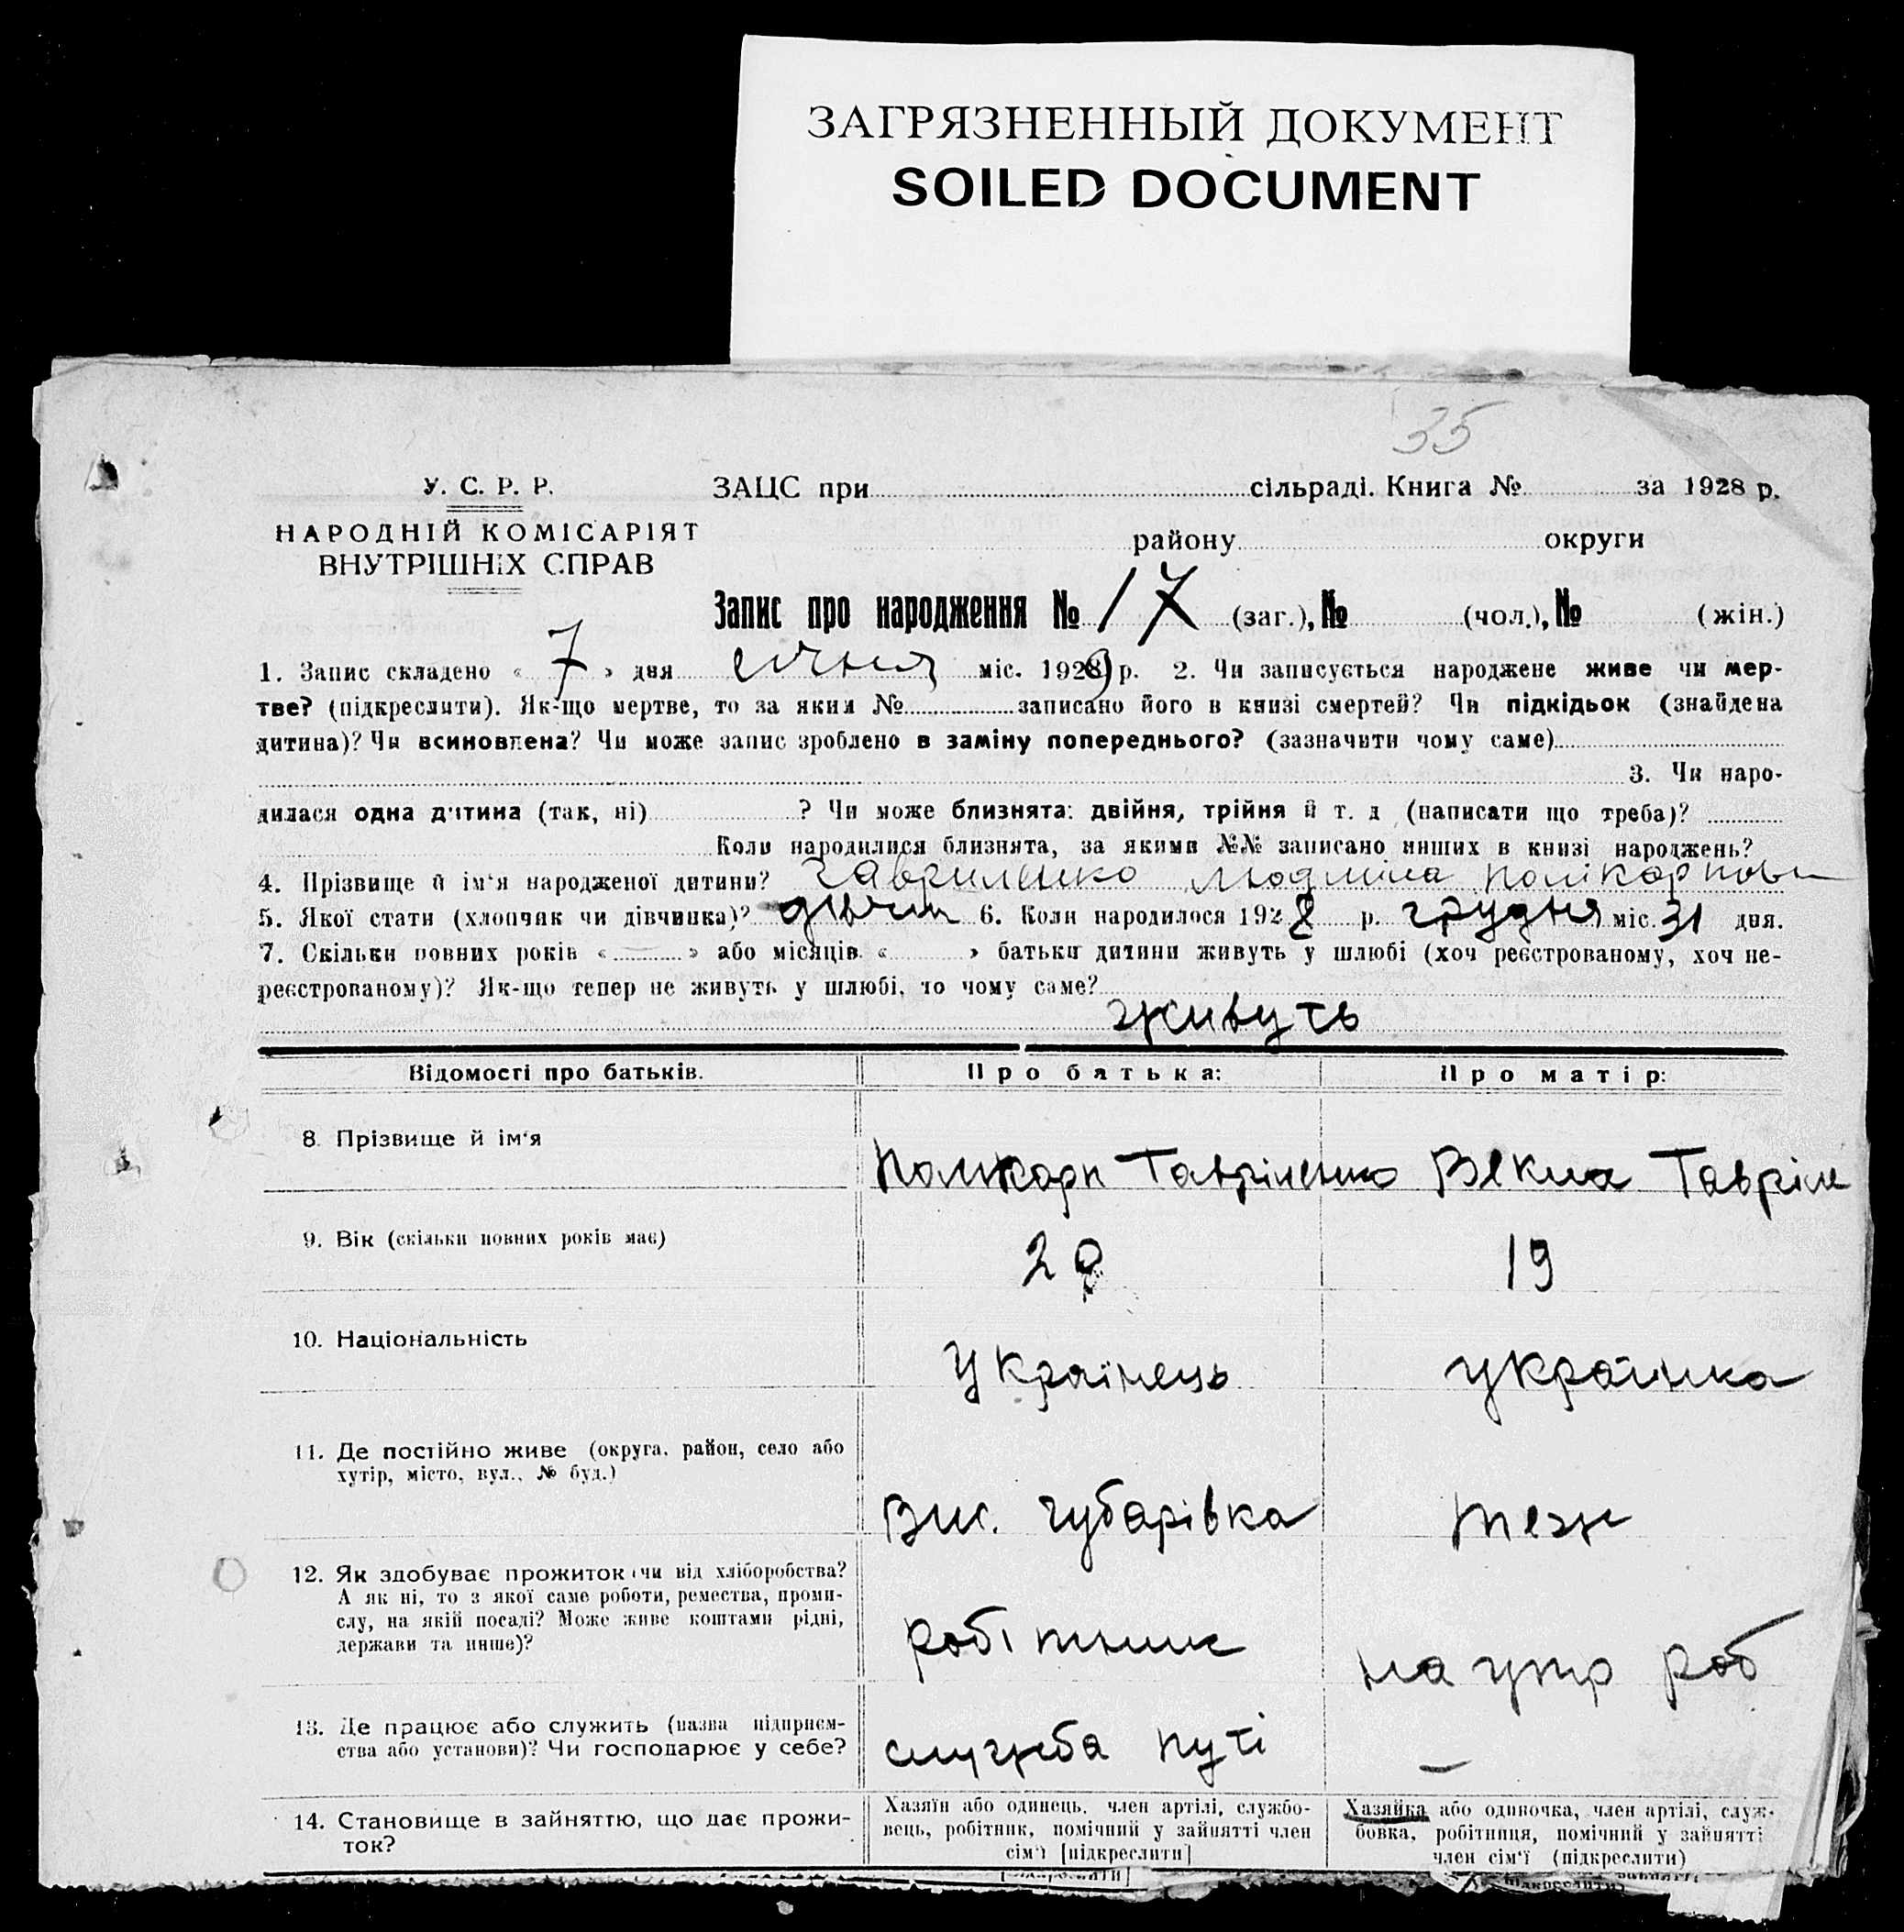 ЗАГРЯЗНЕННЫЙ ДОКУМЕНТ
SOILED DOCUMENT
35
У. С. Р. Р.
НАРОДНІЙ КОМІСАРІЯТ
ВНУТРІШНІХ СПРАВ
ЗАЦС при сільраді. Книга № за 1928 р.
району округи
Запис про народження № 17 (заг.), № (чол.), № (жін.)
1. Запис складено « 7 » дня січня міс. 1929 р. 2. Чи записується народжене живе чи мер-
тве? (підкреслити). Як-що мертве, то за яким № записано його в книзі смертей? Чи підкідьок (знайдена
дитина)? Чи всиновлена? Чи може запис зроблено в заміну попереднього? (зазначити чому саме)
3. Чи наро-
дилася одна дитина (так, ні) ? Чи може близнята: двійня, трійня й т. д (написати що треба)?
Коли народилися близнята, за якими №№ записано инших в книзі народжень?
4. Прізвище й ім'я народженої дитини? Гавриленко Людміла Полікарповн
5. Якої стати (хлопчик чи дівчинка)? дівчин 6. Коли народилося 1928 р. грудня міс. 31 дня.
7. Скільки повних років « » або місяців « » батьки дитини живуть у шлюбі (хоч реєстрованому, хоч не-
реєстрованому)? Як-що тепер не живуть у шлюбі, то чому саме?
живуть
Відомості про батьків. Про батька: Про матір:
8. Прізвище й ім'я
Полікарп Гавріленко Векла Гавріле
9. Вік (скільки повних років має) 28 19
10. Національність
Українець українка
11. Де постійно живе (округа, район, село або
хутір, місто, вул., № буд.)
Вис. Губарівка теж
12. Як здобуває прожиток (чи від хліборобства?
А як ні, то з якої саме роботи, ремества, проми-
слу, на якій посаді? Може живе коштами рідні,
держави та инше)?
робітник на утр роб
13. Де працює або служить (назва підприєм-
ства або установи)? Чи господарює у себе?
служба путі —
14. Становище в зайняттю, що дає прожи-
ток?
Хазяїн або одинець, член артілі, службо-
вець, робітник, помічний у зайнятті член
сім'ї [підкреслити]
Хазяйка або одиночка, член артілі, служ-
бовка, робітниця, помічний у зайнятті
член сім'ї (підкреслити)